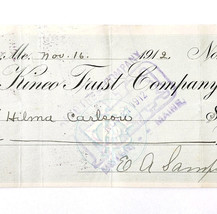 Me. Nov. 16. 1912 No
Kineo Trust Company
Hilma Carlson $
E A Samp